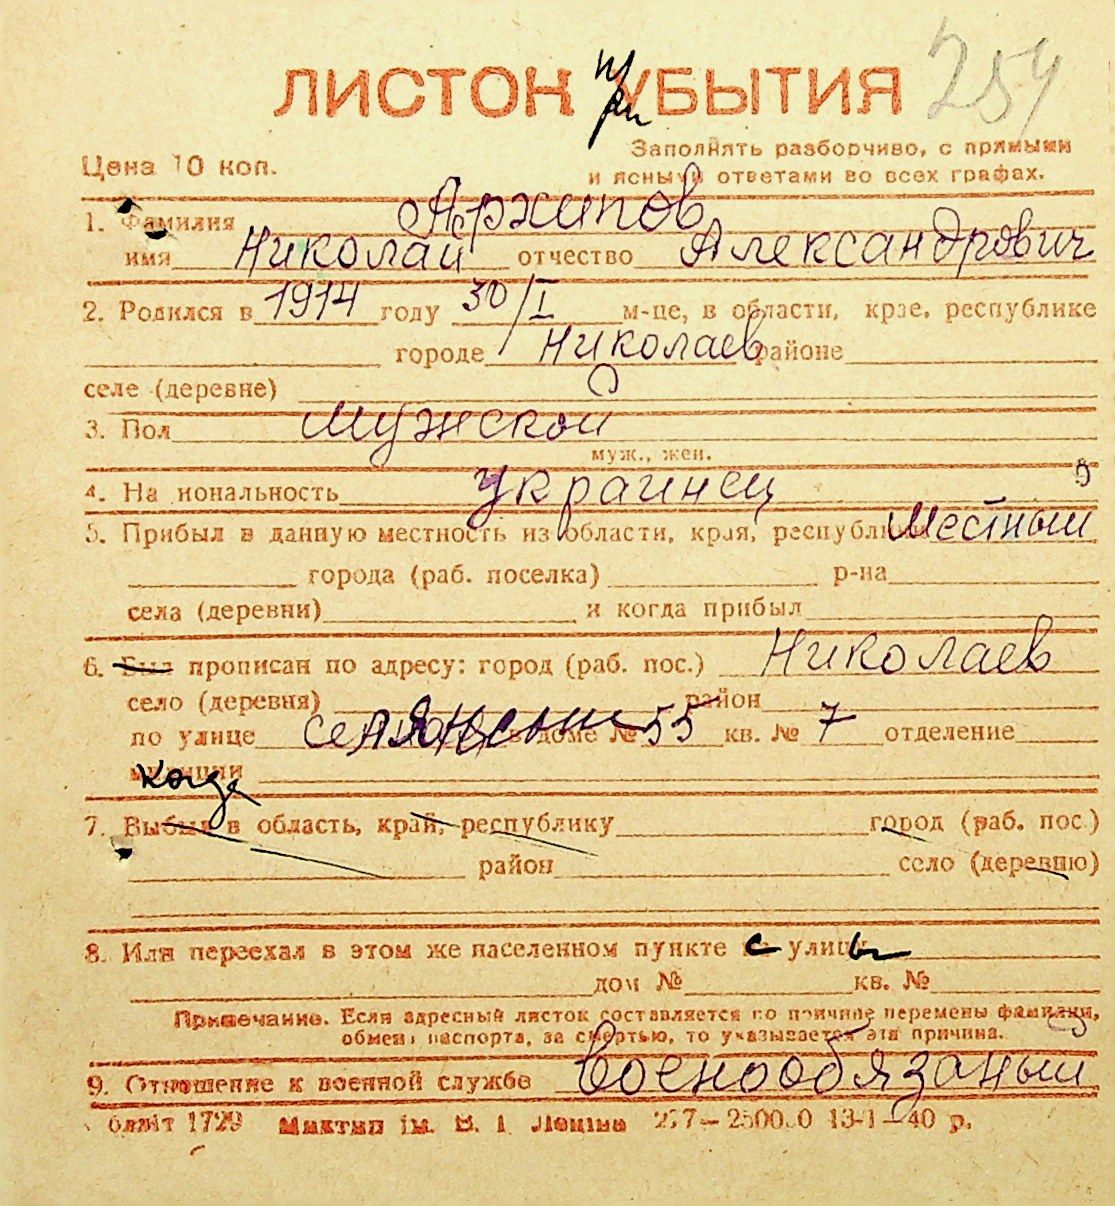 ЛИСТОК при УБЫТИЯ 254
Цена 10 коп.
Заполнять разборчиво, с прямыми
и ясными ответами во всех графах.
1. Фамилия Архипов
имя Николай отчество Александрович
2. Родился в 1914 году 30/I м-це, в области, крае, республике
городе Николаев районе
селе (деревне)
3. Пол Мужской
муж., жен.
4. На иональность Украинец
5. Прибыл в данную местность из области, края, республики Местный
города (раб. поселка) р-на
села (деревни) и когда прибыл
6. Был прописан по адресу: город (раб. пос.) Николаев
село (деревня) район
по улице в доме № 55 кв. № 7 отделение
милиции
когда
7. Выбыл в область, край, республику город (раб. пос.)
район село (деревню)
8. Или переехал в этом же населенном пункте с улицы
дом № кв. №
Примечание. Если адресный листок составляется по причине перемены фамилии,
обмена паспорта, за смертью, то указывается эта причина.
9. Отношение к военной службе Военообязаный
1729 ім. В. І. Леніна 13-І—40 р.